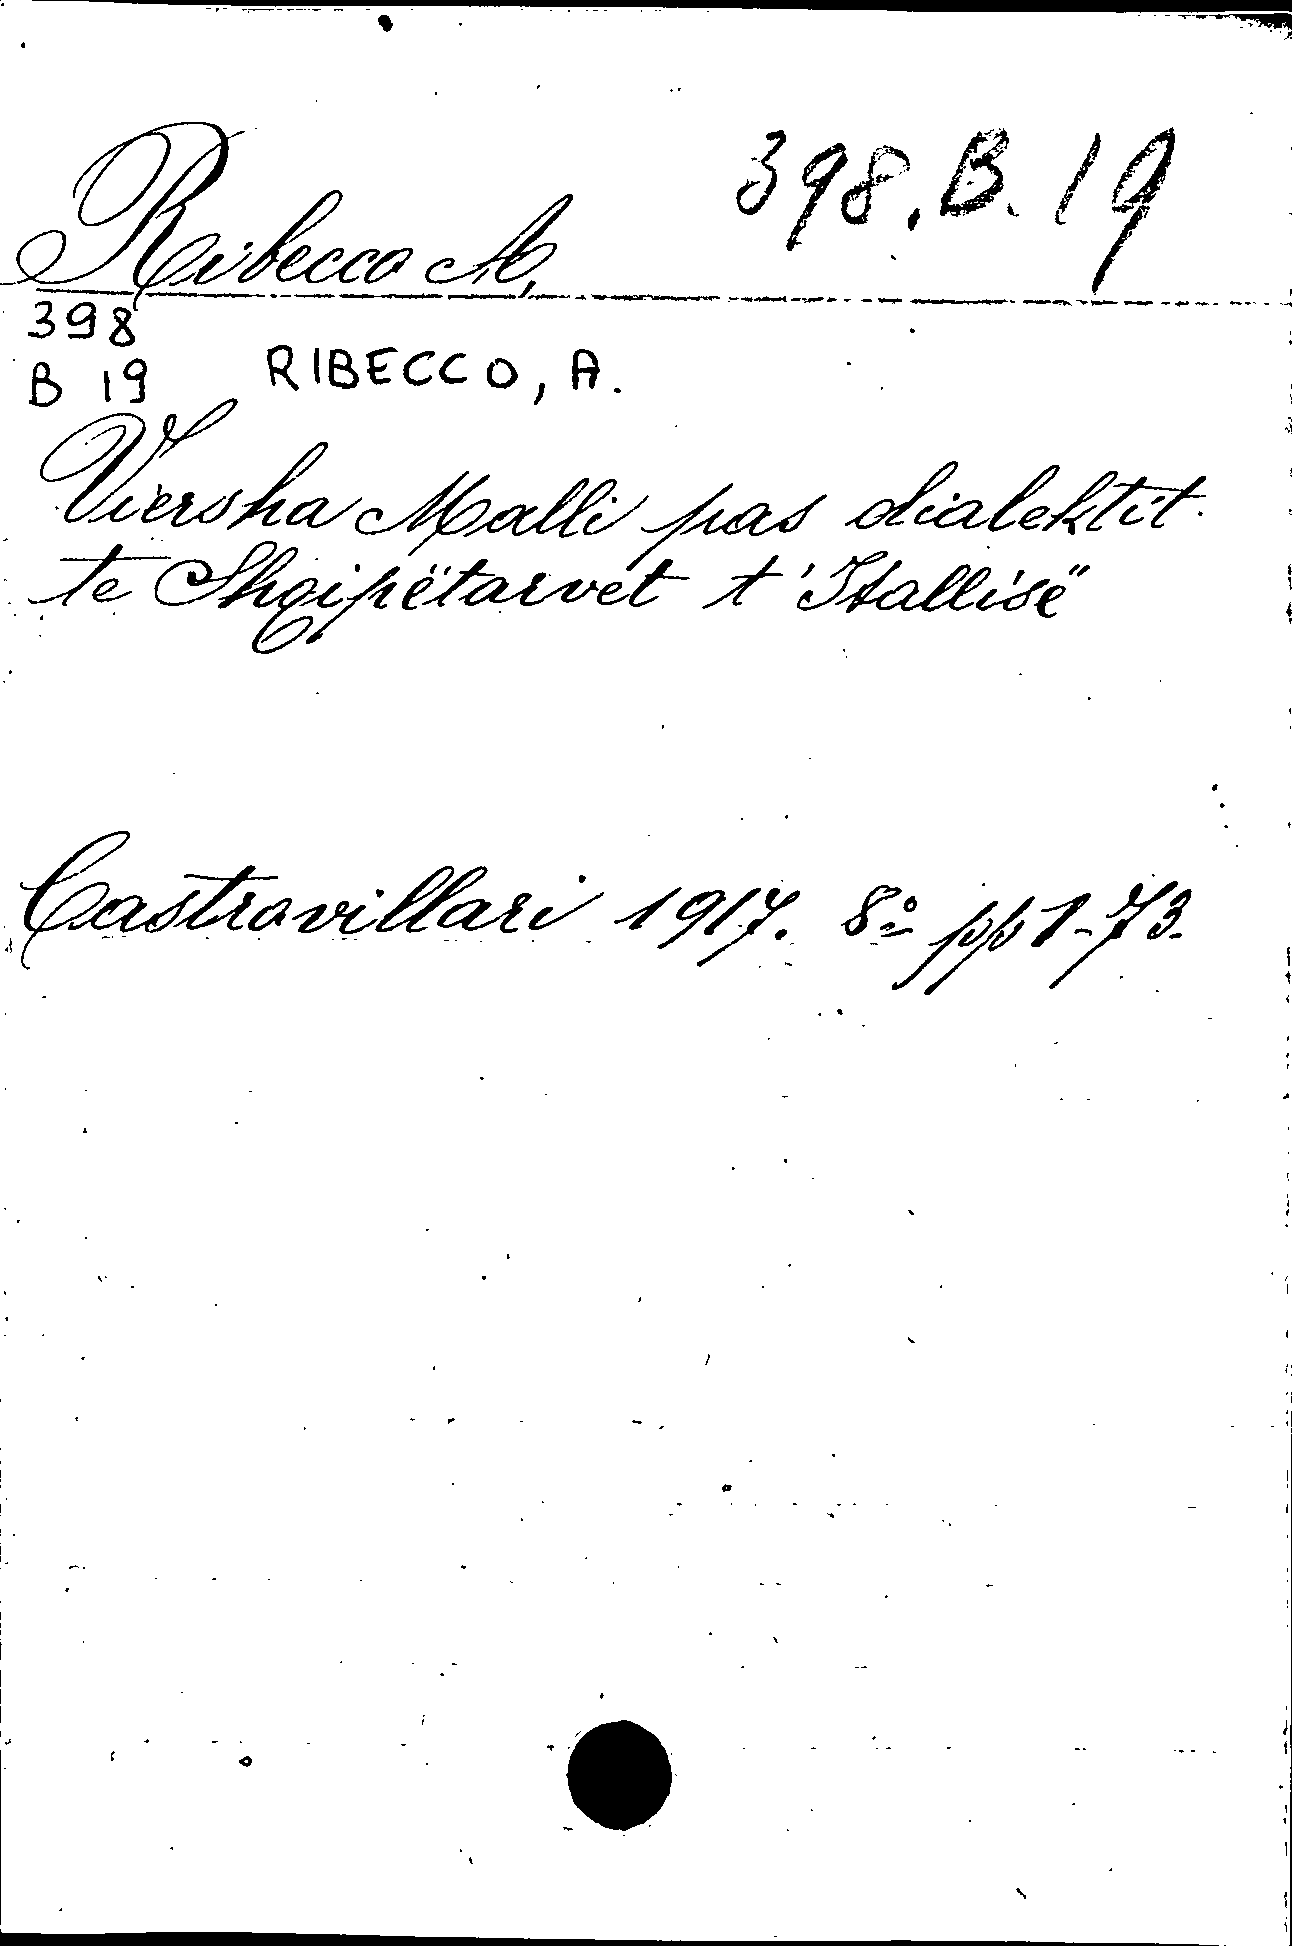 398.B.19
Ribecco A,
398
B 19 RIBECCO, A.
Viersha Malli pas dialektit
te Shqipëtarvet t'Itallisë
Castrovillari 1917. 8º pp 1-73.